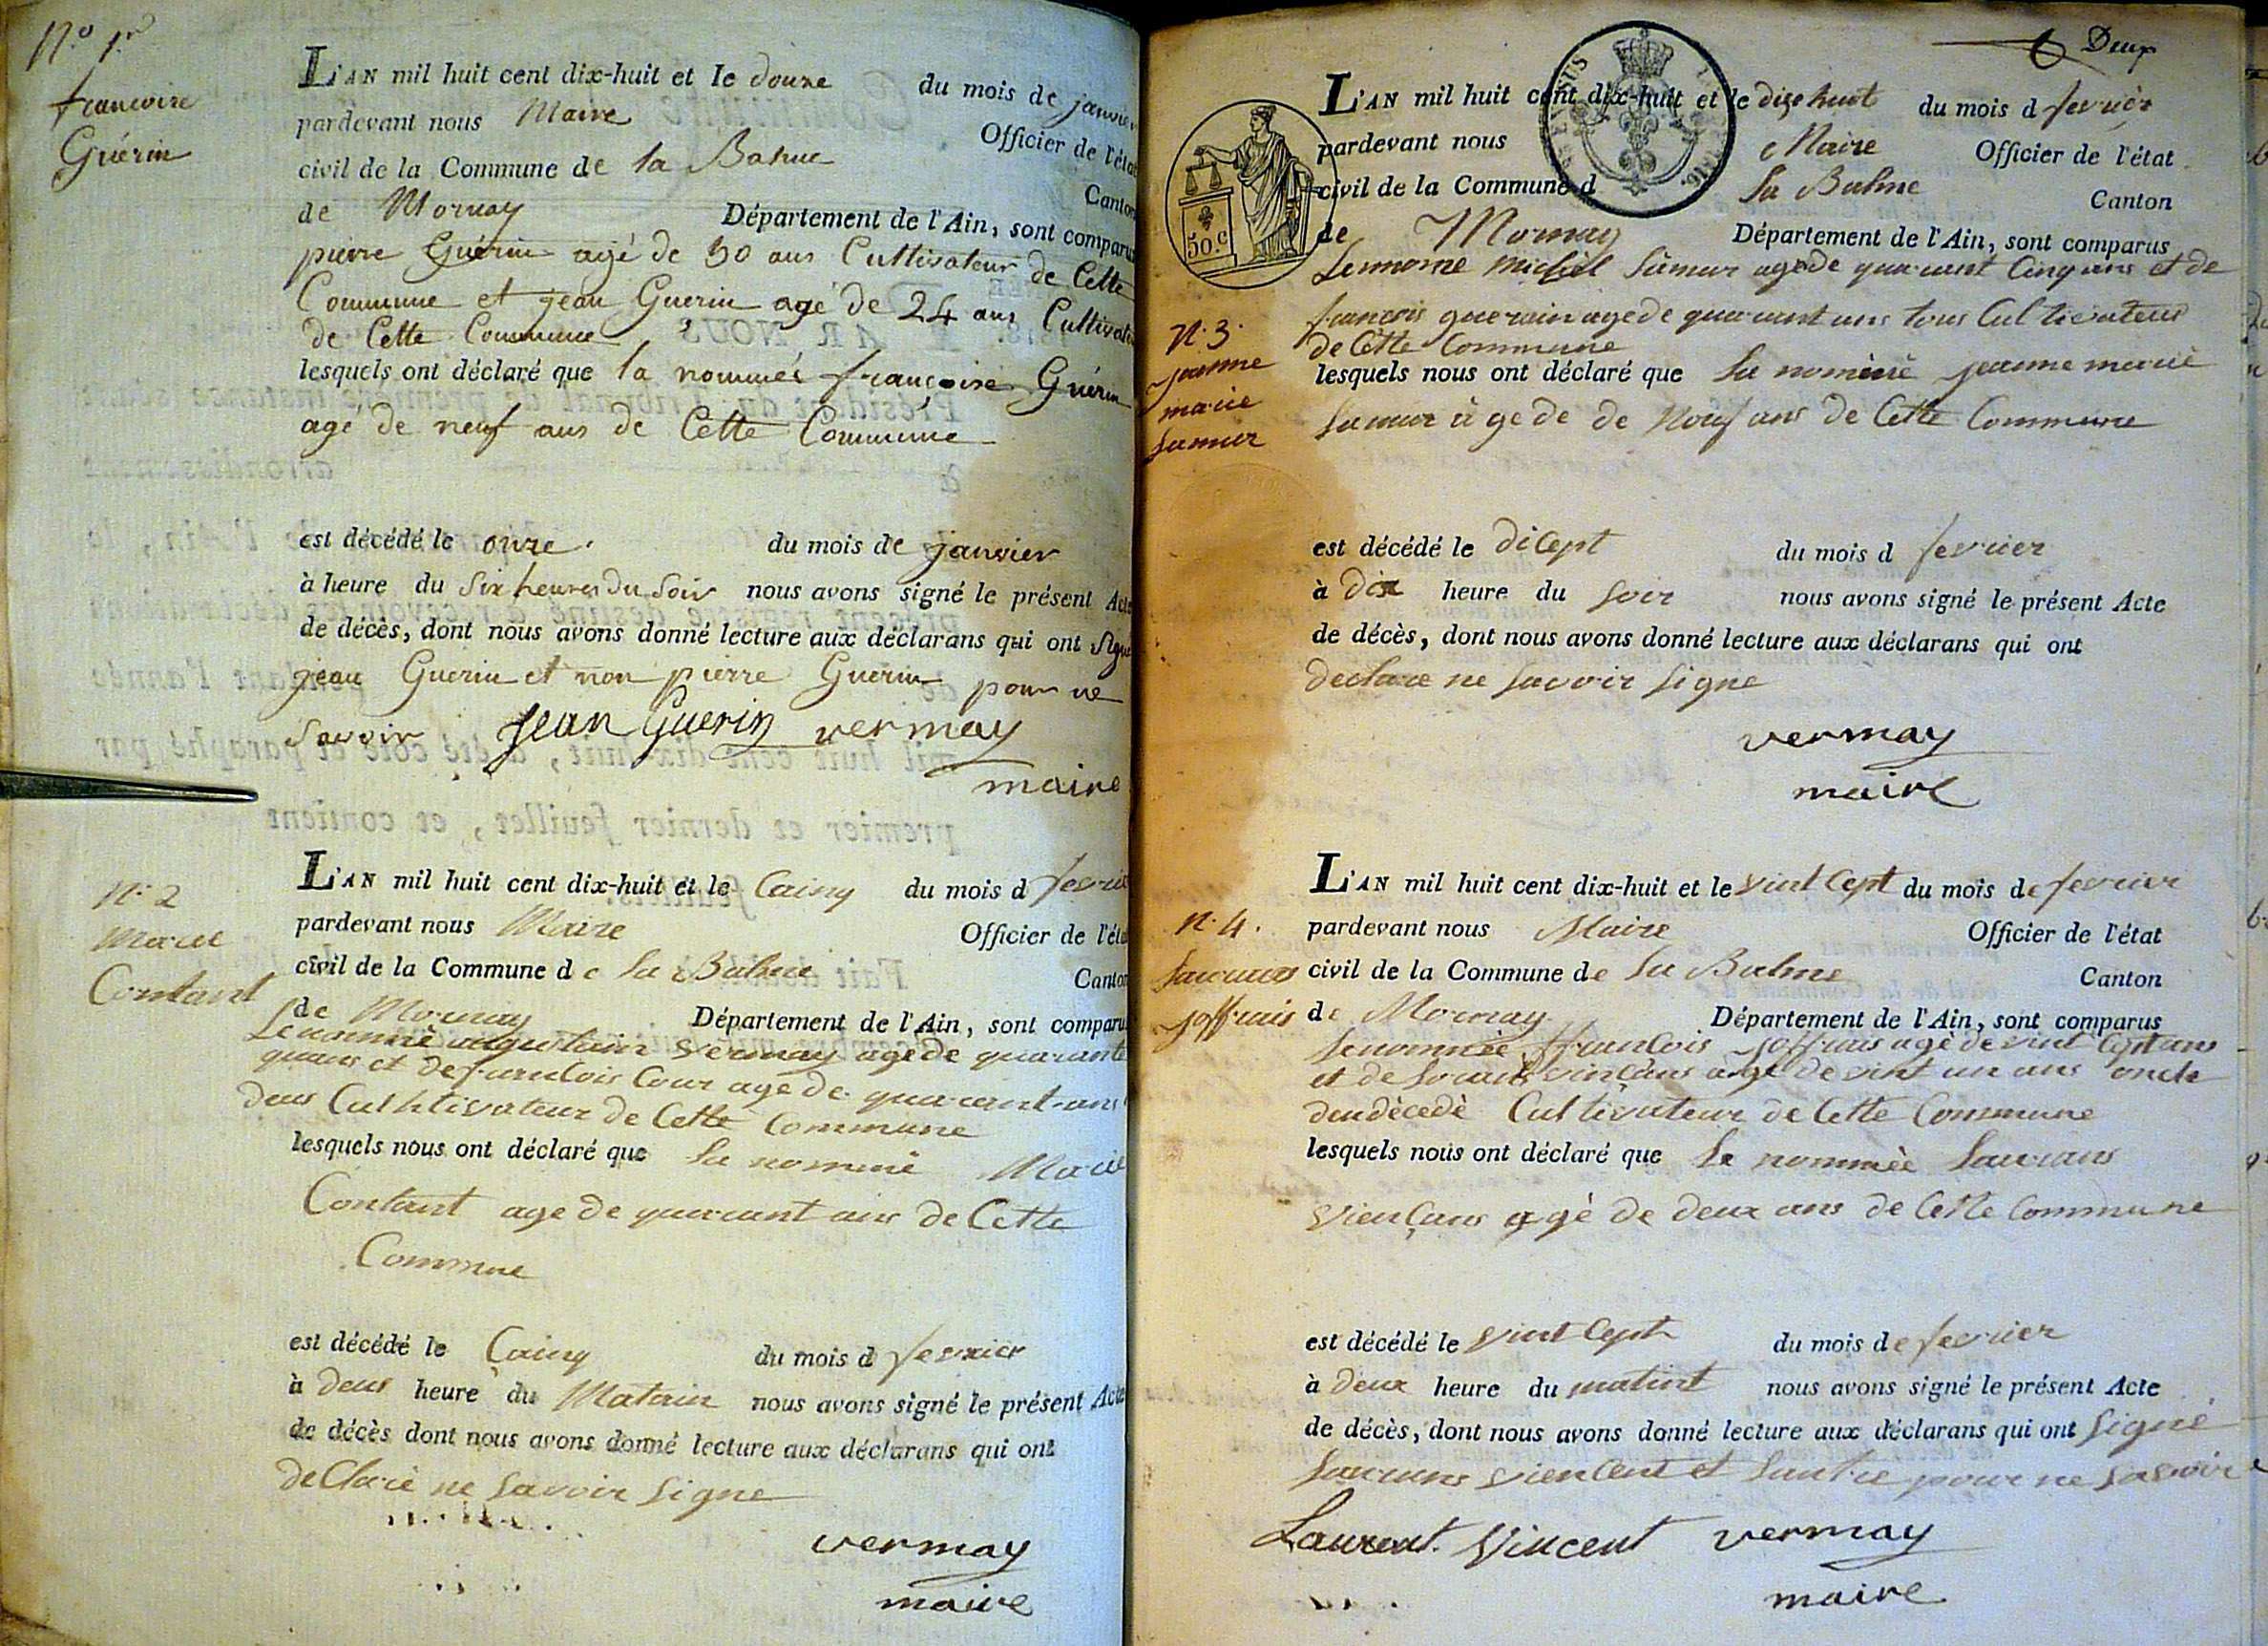 N.o 1.er
francoise
Guérin
L'AN mil huit cent dix-huit et le douze du mois de janvier
pardevant nous Maire Officier de l'état
civil de la Commune de la Balme Canton
de Mornay Département de l'Ain, sont comparus
pierre Guérin agé de 30 ans Cultivateur de Cette
Commune et jean Guerin agé de 24 ans Cultivate
de Cette Commune
lesquels ont déclaré que la nommés françoise Guérin
agé de neuf ans de Cette Commune
est décédé le onze du mois de janvier
à heure du Six heures Du Soir nous avons signé le présent Acte
de décès, dont nous avons donné lecture aux déclarans qui ont signé
jean Guerin et non pierre Guerin pour ne
Savoir Jean Guerin vermay
maire
N.o 2
Marie
Contant
L'AN mil huit cent dix-huit et le Cainq du mois d fevrie
pardevant nous Maire Officier de l'état
civil de la Commune de la Balme Canton
de Mornay Département de l'Ain, sont comparu
Le nommé augustain Vermay age de quarante
quans et de francois Cour age de quarant ans
deus Culhtivateur de Cette Commune
lesquels nous ont déclaré que la nommé Marie
Contant age de quarant ans de Cette
Commne
est décédé le Cainq du mois d fevrier
à deus heure du Matain nous avons signé le présent Acte
de décès dont nous avons donné lecture aux déclarans qui ont
declaré ne savoir signe
vermay
maire
6 Deux
50.c
L'AN mil huit cent dix-huit et le dixe huit du mois d fevrier
pardevant nous Maire Officier de l'état
civil de la Commune d la Balme Canton
de Mornay Département de l'Ain, sont comparus
Le nomme michel Samur age de quarant Cinq ans et de
francois guerain age de quarant ans tous Cultivateur
de Cette Commune
N.o 3.
jeanne
marie
Samur
lesquels nous ont déclaré que la nommé jeanne marie
Samur age de de Nouf ans de Cette Commune
est décédé le dicept du mois d fevrier
à dix heure du soir nous avons signé le présent Acte
de décès, dont nous avons donné lecture aux déclarans qui ont
declare ne savoir signe
vermay
maire
L'AN mil huit cent dix-huit et le vint Cept du mois de fevrier
N.o 4.
Laurans
joffrais
pardevant nous Maire Officier de l'état
civil de la Commune de la Balme Canton
de Mornay Département de l'Ain, sont comparus
le nommée francois joffrais agé de vint Cept ans
et de Lorans vincans agé de vint un ans oncle
deu décedè Cultivateur de Cette Commune
lesquels nous ont déclaré que Le nommèe Laurans
Viencans agé de deux ans de Cette Commune
est décédé le vint Cept du mois de fevrier
à deux heure du matint nous avons signé le présent Acte
de décès, dont nous avons donné lecture aux déclarans qui ont signé
Laurans viencent et Lautre pour ne savoir
Laurent Vincent vermay
maire